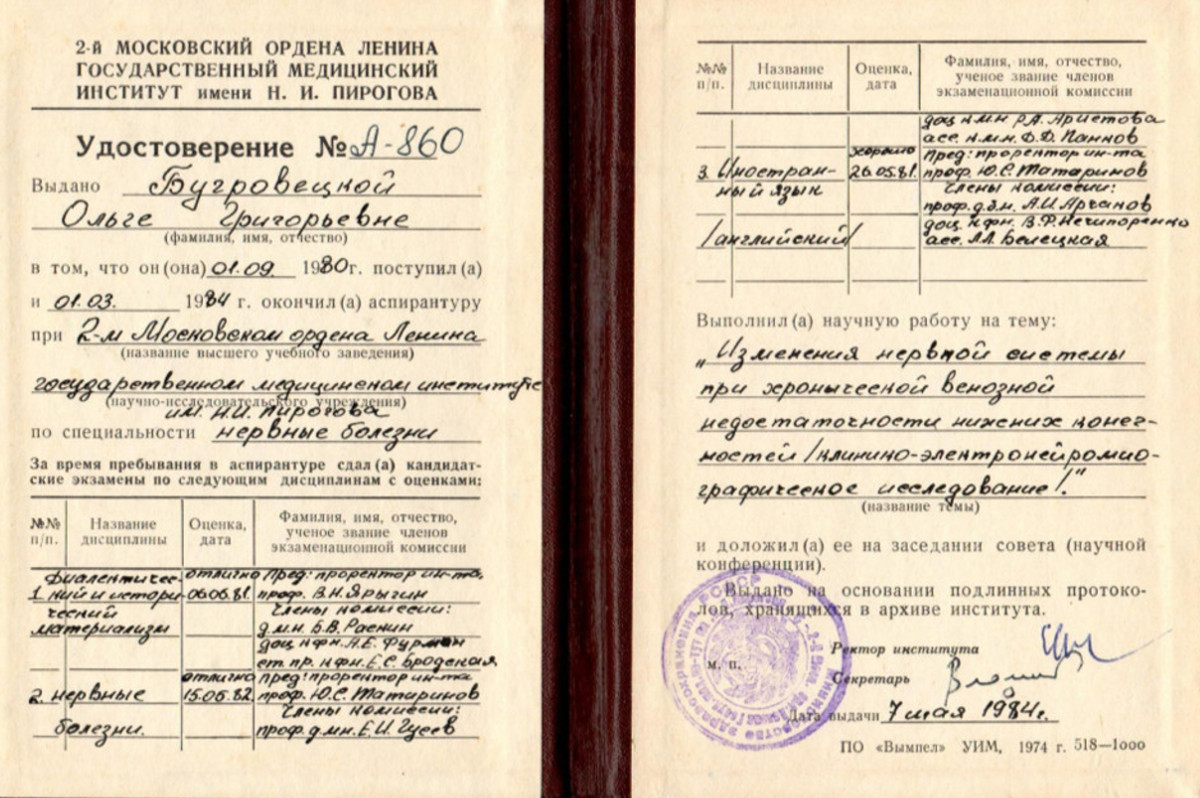 2-й МОСКОВСКИЙ ОРДЕНА ЛЕНИНА
ГОСУДАРСТВЕННЫЙ МЕДИЦИНСКИЙ
ИНСТИТУТ имени Н. И. ПИРОГОВА
Удостоверение № А-860
Выдано Бугровецкой
Ольге Григорьевне
(фамилия, имя, отчество)
в том, что он (она) 01.09. 1980 г. поступил (а)
и 01.03. 1984 г. окончил (а) аспирантуру
при 2-м Московском ордена Ленина
(название высшего учебного заведения)
государственном медицинском институте
(научно-исследовательского учреждения)
им. Н.И. Пирогова
по специальности нервные болезни
За время пребывания в аспирантуре сдал (а) кандидат-
ские экзамены по следующим дисциплинам с оценками:
№№ п/п. Название дисциплины Оценка, дата Фамилия, имя, отчество, ученое звание членов экзаменационной комиссии
диалектичес- отлично Пред: проректор ин-та,
1. кий и истори 06.06.81. проф. В.Н. Ярыгин
ческий Члены комиссии:
материализм д.м.н. Б.В. Раскин
доц. к.ф.н. А.Е. Фурман
ст. пр. к.ф.н. Е.С. Бродская
отлично пред: проректор ин-та
2. нервные 15.06.82. проф. Ю.С. Татаринов
Члены комиссии:
болезни. проф. д.м.н. Е.И. Гусев
№№ п/п. Название дисциплины Оценка, дата Фамилия, имя, отчество, ученое звание членов экзаменационной комиссии
доц к.м.н Р.А. Аристова
асс. к.м.н. Ф.Ф. Панков
хорошо Пред: проректор ин-та
3. Иностран- 26.05.81. проф. Ю.С. Татаринов
ный язык Члены комиссии:
проф. д.э.н. А.И. Арчаков
доц. к.ф.н. В.Ф. Нечипоренко
/английский/ асс. Л.Л. Белецкая
Выполнил (а) научную работу на тему:
„Изменения нервной системы
при хронической венозной
недостаточности нижних конеч-
ностей /клинико-электронейромио-
графическое исследование/."
(название темы)
и доложил (а) ее на заседании совета (научной
конференции).
Выдано на основании подлинных протоко-
лов, хранящихся в архиве института.
Ректор института
м. п.
Секретарь
Дата выдачи 7 мая 1984г.
ПО «Вымпел» УИМ, 1974 г. 518—1000